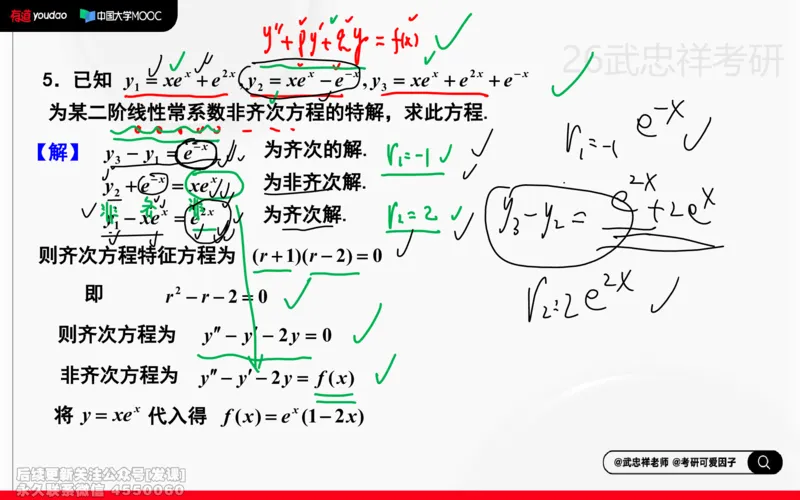 有道 youdao 中国大学MOOC
y″+py′+qy=f(x)
26武忠祥考研
5. 已知 y₁ = xeˣ + e²ˣ, y₂ = xeˣ − e⁻ˣ, y₃ = xeˣ + e²ˣ + e⁻ˣ
为某二阶线性常系数非齐次方程的特解，求此方程.
r₁=-1 e⁻ˣ
【解】 y₃ − y₁ = e⁻ˣ 为齐次的解. r₁=-1
y₂ + e⁻ˣ = xeˣ 为非齐次解.
非 齐 非
y₁ − xeˣ = e²ˣ 为齐次解. r₂=2
y₃-y₂= e²ˣ+2eˣ
则齐次方程特征方程为 (r+1)(r−2)=0
即 r² − r − 2 = 0
r₂=2 e²ˣ
则齐次方程为 y″ − y′ − 2y = 0
非齐次方程为 y″ − y′ − 2y = f(x)
将 y = xeˣ 代入得 f(x) = eˣ(1−2x)
@武忠祥老师 @考研可爱因子
后续更新关注公众号[发课]
永久联系微信 4550060